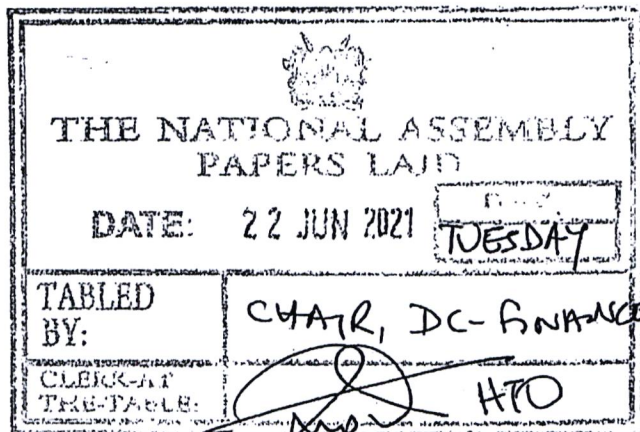 THE NATIONAL ASSEMBLY
PAPERS LAID
DATE: 22 JUN 2021
TUESDAY
TABLED BY: CHAIR, DC-FINANCE
CLERK-AT THE-TABLE: HTO